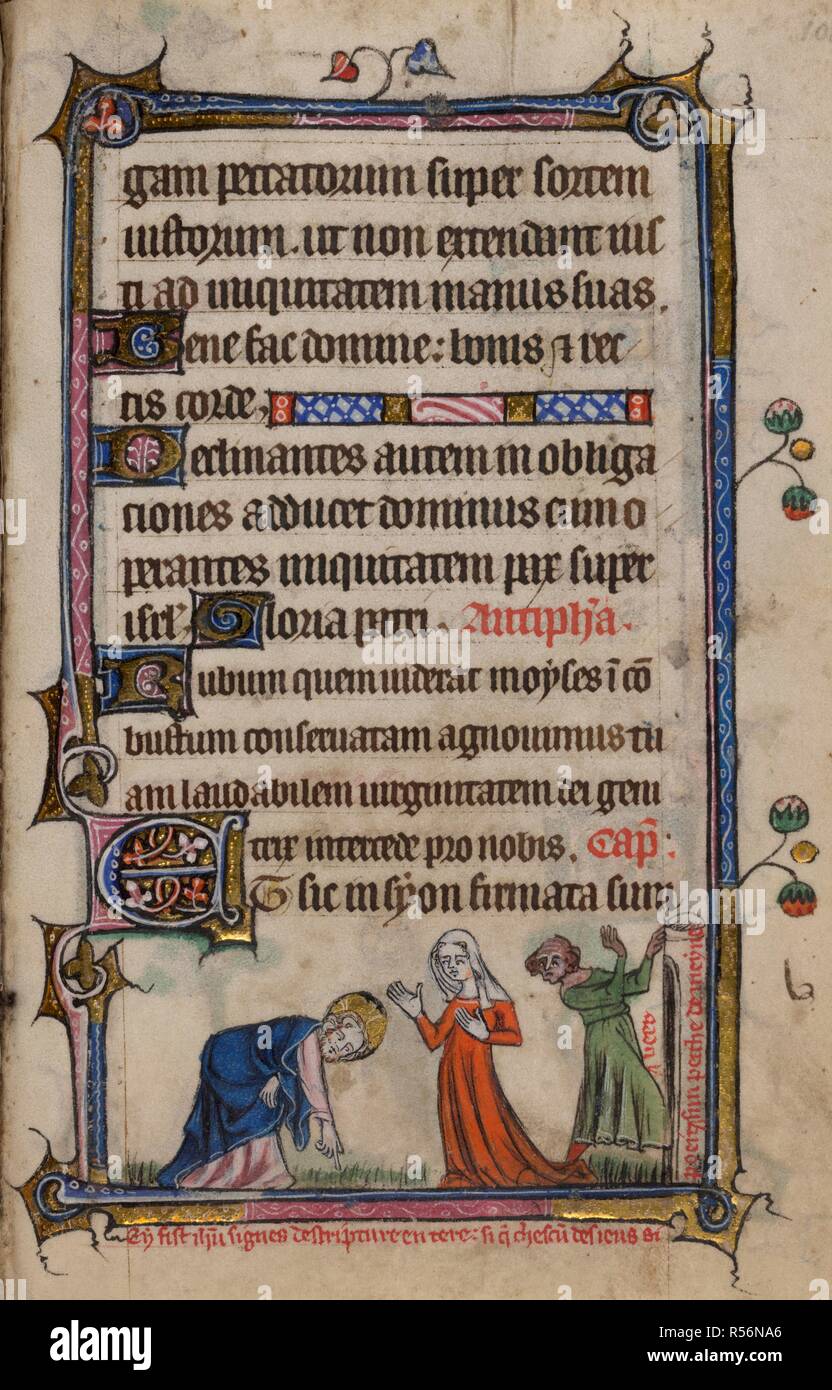 gam peccatorum super sortem
iustorum. ut non extendant ius
ti ad iniquitatem manus suas.
Bene fac domine: bonis ⁊ rec
tis corde.
Declinantes autem in obliga
ciones adducet dominus cum o
perantes iniquitatem pax super
isrl̃. Gloria patri. Antiphᷓa.
Rubum quem uiderat moyses ĩ cõ
bustum conseruatam agnouimus tu
am laudabilem uirginitatem dei geni
trix intercede pro nobis. Cap̃:
Et sic in syon firmata sum
Cy fist ihũ signes descripture en tere: si q̃ chescũ des ieus si
alamy
Image ID: R56NA6
www.alamy.com